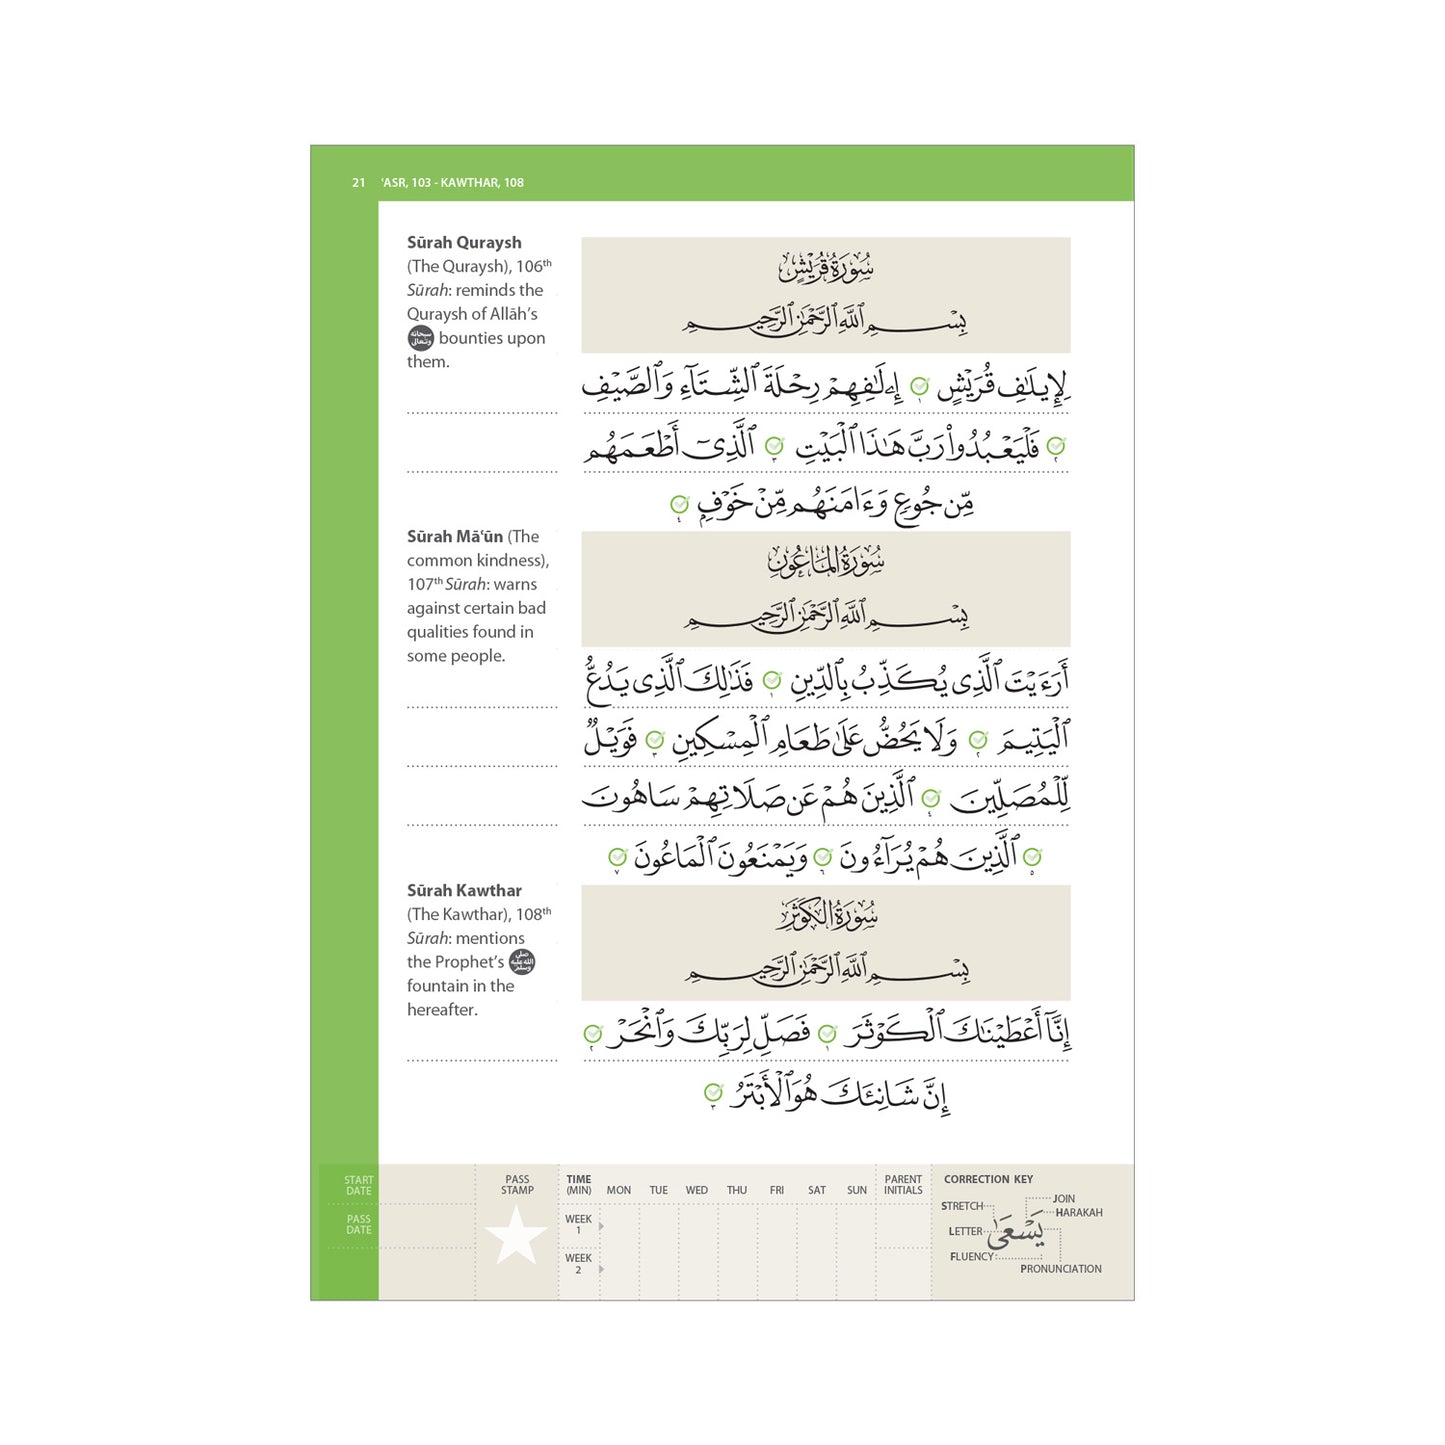 21 ʿASR, 103 - KAWTHAR, 108
Sūrah Quraysh
(The Quraysh), 106th
Sūrah: reminds the
Quraysh of Allāh’s
سبحانه وتعالى bounties upon
them.
سُورَةُ قُرَيْشٍ
بِسْمِ ٱللَّهِ ٱلرَّحْمَٰنِ ٱلرَّحِيمِ
لِإِيلَٰفِ قُرَيْشٍ ١ إِۦلَٰفِهِمْ رِحْلَةَ ٱلشِّتَآءِ وَٱلصَّيْفِ
٢ فَلْيَعْبُدُوا۟ رَبَّ هَٰذَا ٱلْبَيْتِ ٣ ٱلَّذِىٓ أَطْعَمَهُم
مِّن جُوعٍ وَءَامَنَهُم مِّنْ خَوْفٍۭ ٤
Sūrah Māʿūn (The
common kindness),
107th Sūrah: warns
against certain bad
qualities found in
some people.
سُورَةُ المَاعُونِ
بِسْمِ ٱللَّهِ ٱلرَّحْمَٰنِ ٱلرَّحِيمِ
أَرَءَيْتَ ٱلَّذِى يُكَذِّبُ بِٱلدِّينِ ١ فَذَٰلِكَ ٱلَّذِى يَدُعُّ
ٱلْيَتِيمَ ٢ وَلَا يَحُضُّ عَلَىٰ طَعَامِ ٱلْمِسْكِينِ ٣ فَوَيْلٌ
لِّلْمُصَلِّينَ ٤ ٱلَّذِينَ هُمْ عَن صَلَاتِهِمْ سَاهُونَ
٥ ٱلَّذِينَ هُمْ يُرَآءُونَ ٦ وَيَمْنَعُونَ ٱلْمَاعُونَ ٧
Sūrah Kawthar
(The Kawthar), 108th
Sūrah: mentions
the Prophet’s صلى الله عليه وسلم
fountain in the
hereafter.
سُورَةُ الكَوْثَرِ
بِسْمِ ٱللَّهِ ٱلرَّحْمَٰنِ ٱلرَّحِيمِ
إِنَّآ أَعْطَيْنَٰكَ ٱلْكَوْثَرَ ١ فَصَلِّ لِرَبِّكَ وَٱنْحَرْ ٢
إِنَّ شَانِئَكَ هُوَ ٱلْأَبْتَرُ ٣
START
DATE
PASS
DATE
PASS
STAMP
TIME
(MIN) MON TUE WED THU FRI SAT SUN
WEEK
1
WEEK
2
PARENT
INITIALS
CORRECTION KEY
STRETCH
LETTER
FLUENCY
يَسْعَىٰ
JOIN
HARAKAH
PRONUNCIATION